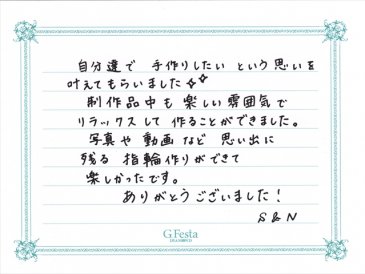 自分達で 手作りしたい という 思いを
叶えてもらいました✧✧
制作品中も 楽しい 雰囲気で
リラックスして 作ることができました。
写真や 動画など 思い出に
残る 指輪作りができて
楽しかったです。
ありがとうございました!
S&N
G.Festa